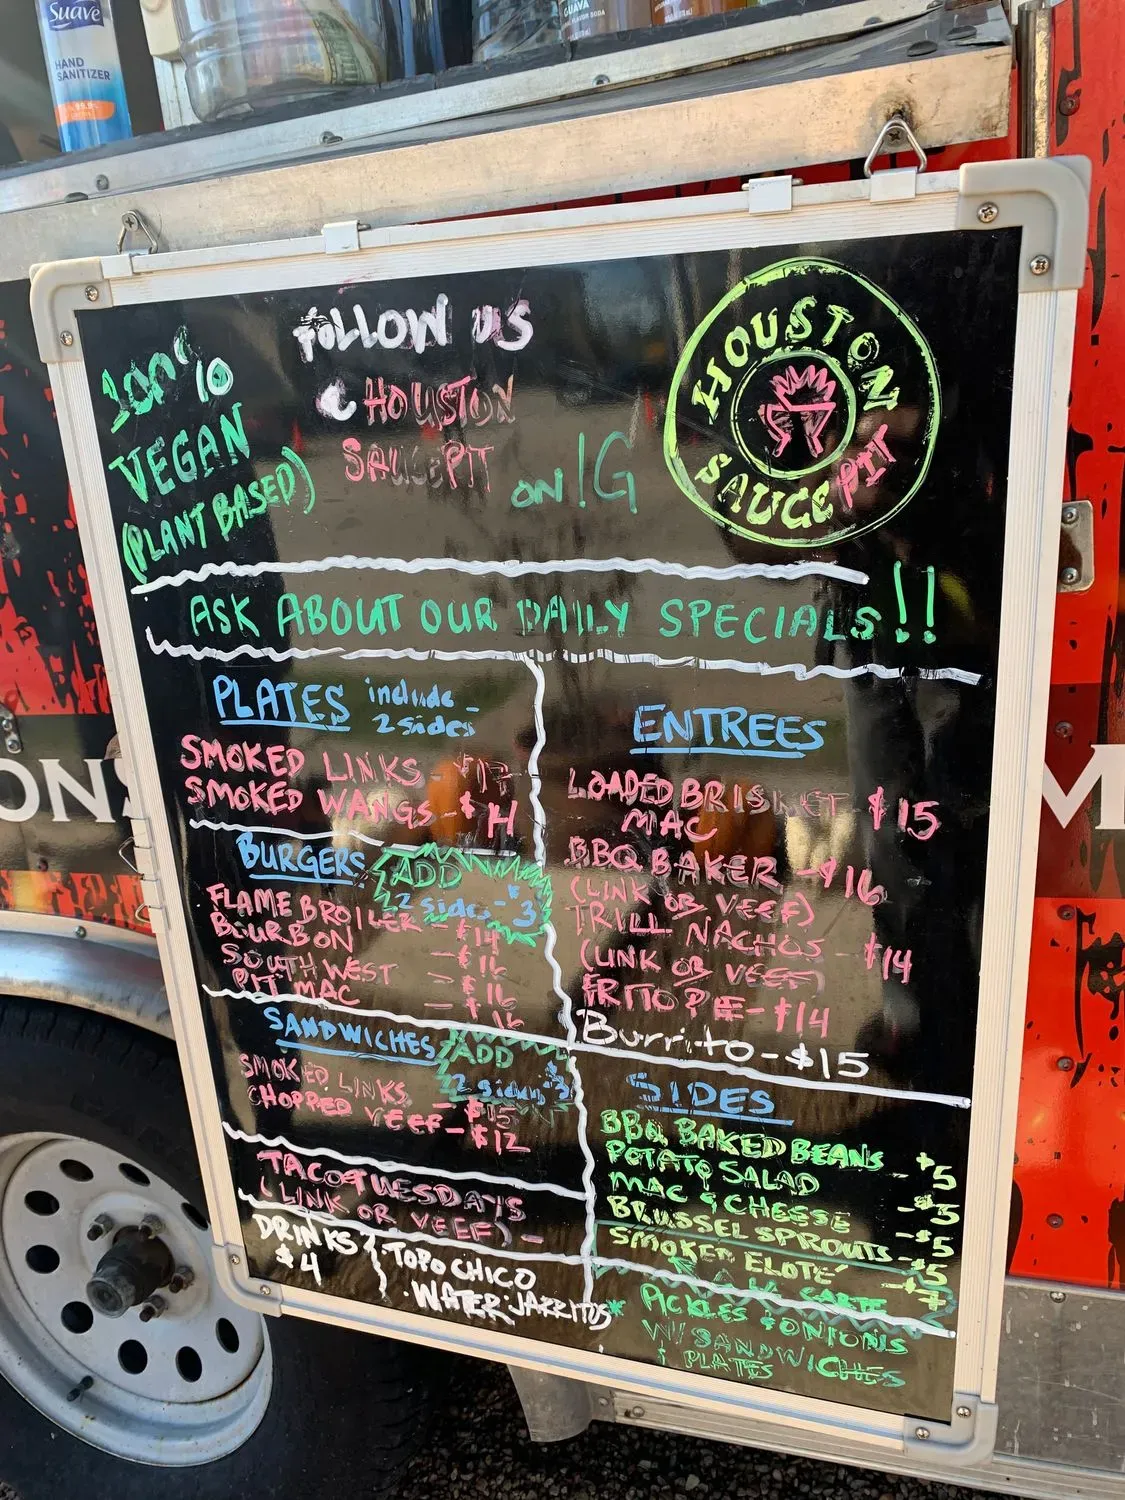 Suave
HAND
SANITIZER
GUAVA
FOLLOW US
@ HOUSTON
SAUCEPIT ON IG
100%
VEGAN
(PLANT BASED)
HOUSTON
SAUCE PIT
ASK ABOUT OUR DAILY SPECIALS!!
PLATES include -
2 sides
SMOKED LINKS - $17
SMOKED WANGS - $14
BURGERS
ADD
2 sides - $3
FLAME BROILER - $14
BOURBON - $16
SOUTHWEST - $16
PIT MAC - $16
SANDWICHES
ADD
2 sides $3
SMOKED LINKS - $15
CHOPPED VEEF - $12
TACO TUESDAYS
(LINK OR VEEF) -
DRINKS
$4
TOPO CHICO
WATER JARRITOS
ENTREES
LOADED BRISKET - $15
MAC
BBQ BAKER - $16
(LINK OR VEEF)
TRILL NACHOS - $14
(LINK OR VEEF)
FRITO PIE - $14
Burrito - $15
SIDES
BBQ BAKED BEANS - $5
POTATO SALAD
MAC & CHEESE - $5
BRUSSEL SPROUTS - $5
SMOKED ELOTE - $5
A LA CARTE $7
* PICKLES & ONIONS
W/ SANDWICHES
& PLATES
ONS
M